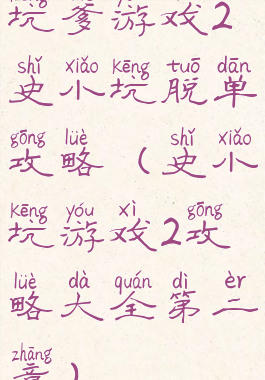 坑爹游戏2
shǐ xiǎo kēng tuō dān
史小坑脱单
gōng lüè shǐ xiǎo
攻略（史小
kēng yóu xì gōng
坑游戏2攻
lüè dà quán dì èr
略大全第二
zhāng
章）